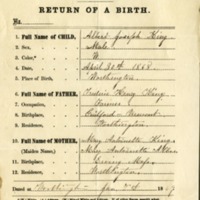 RETURN OF A BIRTH.
No.
1. Full Name of CHILD, Albert Joseph King
2. Sex, Male
3. Color, W
4. Date of Birth, April 30th 1868
5. Place of Birth, Worthington
6. Full Name of FATHER, Frederic King
7. Occupation, Farmer
8. Birthplace, Vermont
9. Residence, Worthington
10. Full Name of MOTHER, Mary Antoinette King
(Maiden Name) Mary Antoinette
11. Birthplace, Mass.
12. Residence, Worthington
Dated at Jan 186